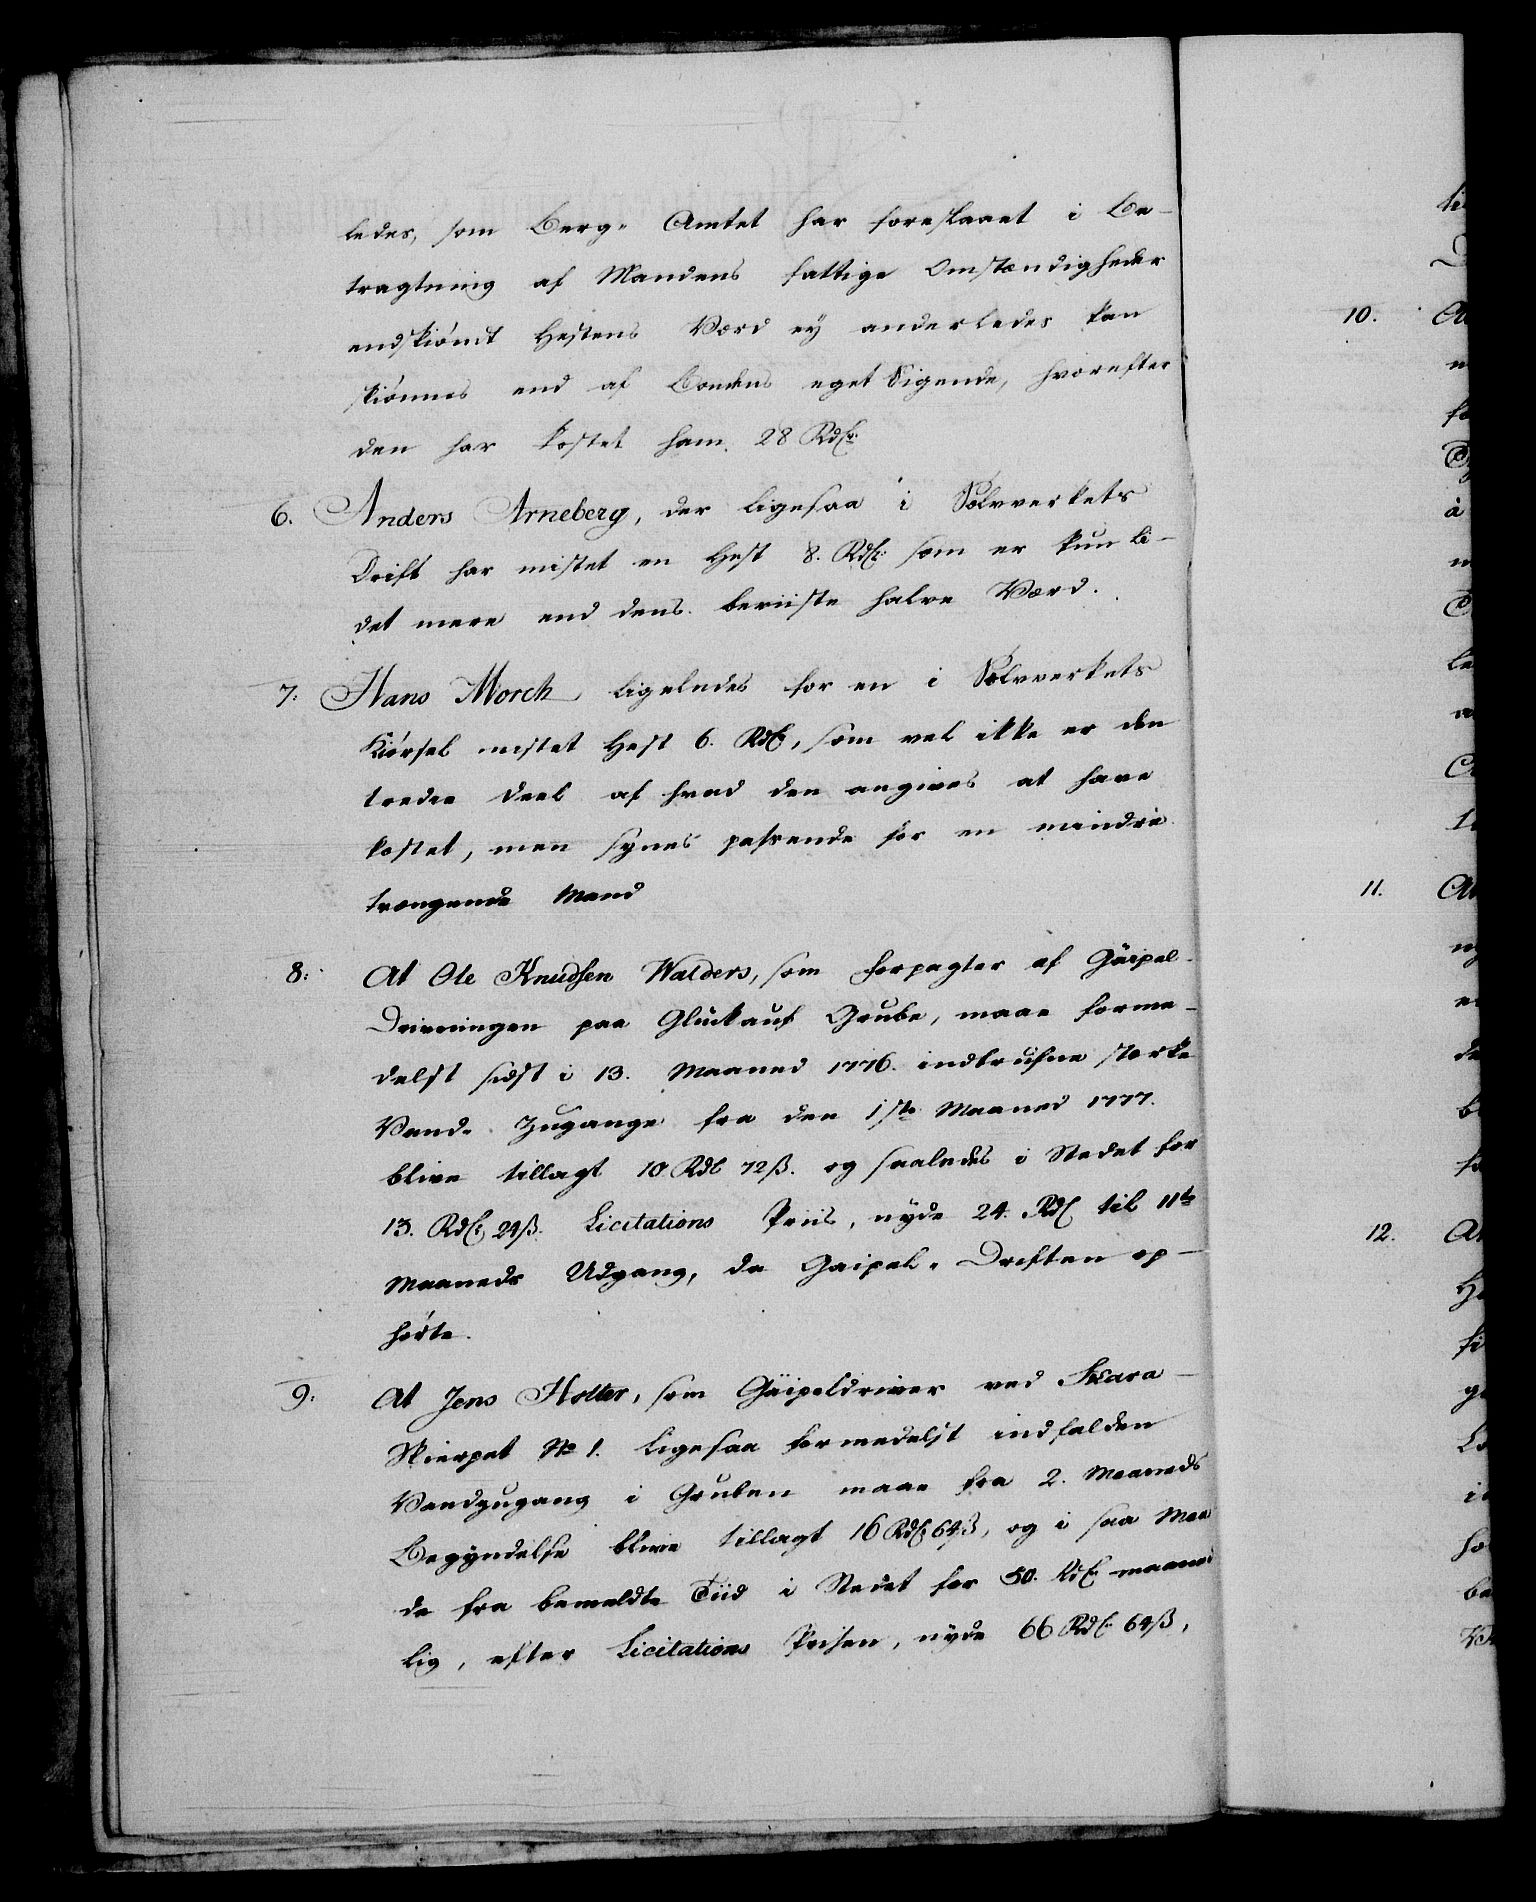 ledes, som Berg- Amtet har foreslaaet i Be-
tragtning af Mandens fattige Omstændigheder
endskiøndt Hestens Værd ey anderledes kan
skiønnes end af Bondens eget Sigende, hvorefter
den har kostet ham 28 Rdlr.
6. Anders Arneberg, der ligesaa i Sølvverkets
Drift har mistet en Hest 8. Rdlr. som er kun li-
det mere end dens beviiste halve Værd.
7. Hans Morch ligeledes for en i Sølvverkets
Kiørsel mistet Hest 6. Rdl, som vel ikke er den
tredie Deel af hvad den angives at have
kostet, men synes passende for en mindre
trængende Mand
8. At Ole Knudsen Walders, som Forpagter af Gäipel-
Drivningen paa Glückauf Grube, maae forme-
delst sidst i 13. Maaned 1776. indbrudne stærke
Vand- Zugange fra den 1ste Maaned 1777.
blive tillagt 10 Rdl 72 ß. og saaledes i Stedet for
13. Rdl. 24 ß. Licitations Priis, nyde 24. Rdl til 11te
Maaneds Udgang, da Gaipel- Driften op-
hørte.
9. At Jens Holter, som Gäipeldriver ved Skara-
Skierpet No 1. ligesaa formedelst indfalden
Vandzugang i Gruben maae fra 2. Maaneds
Begyndelse blive tillagt 16 Rdl 64 ß, og i saa Maa
de fra bemeldte Tiid i Stedet for 50. Rdl. maaned
lig, efter Licitations Prisen, nyde 66 Rdl. 64 ß,
10.
11.
12.